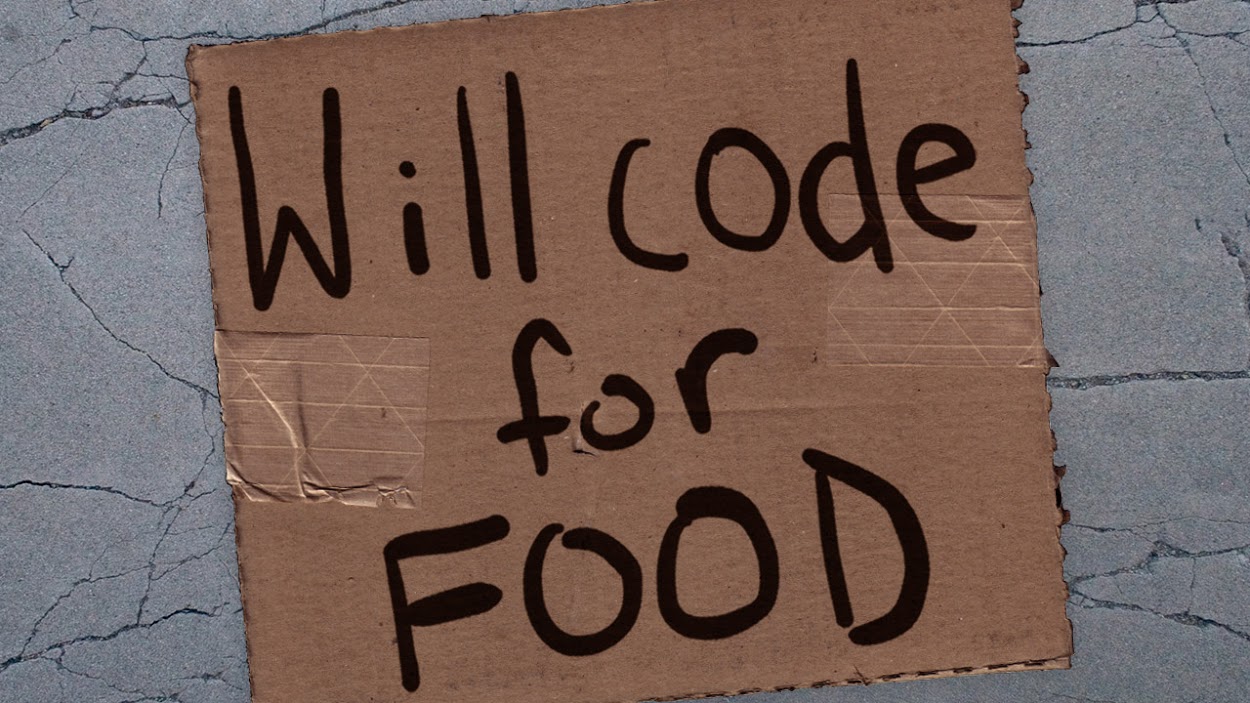 Will code
for
FOOD